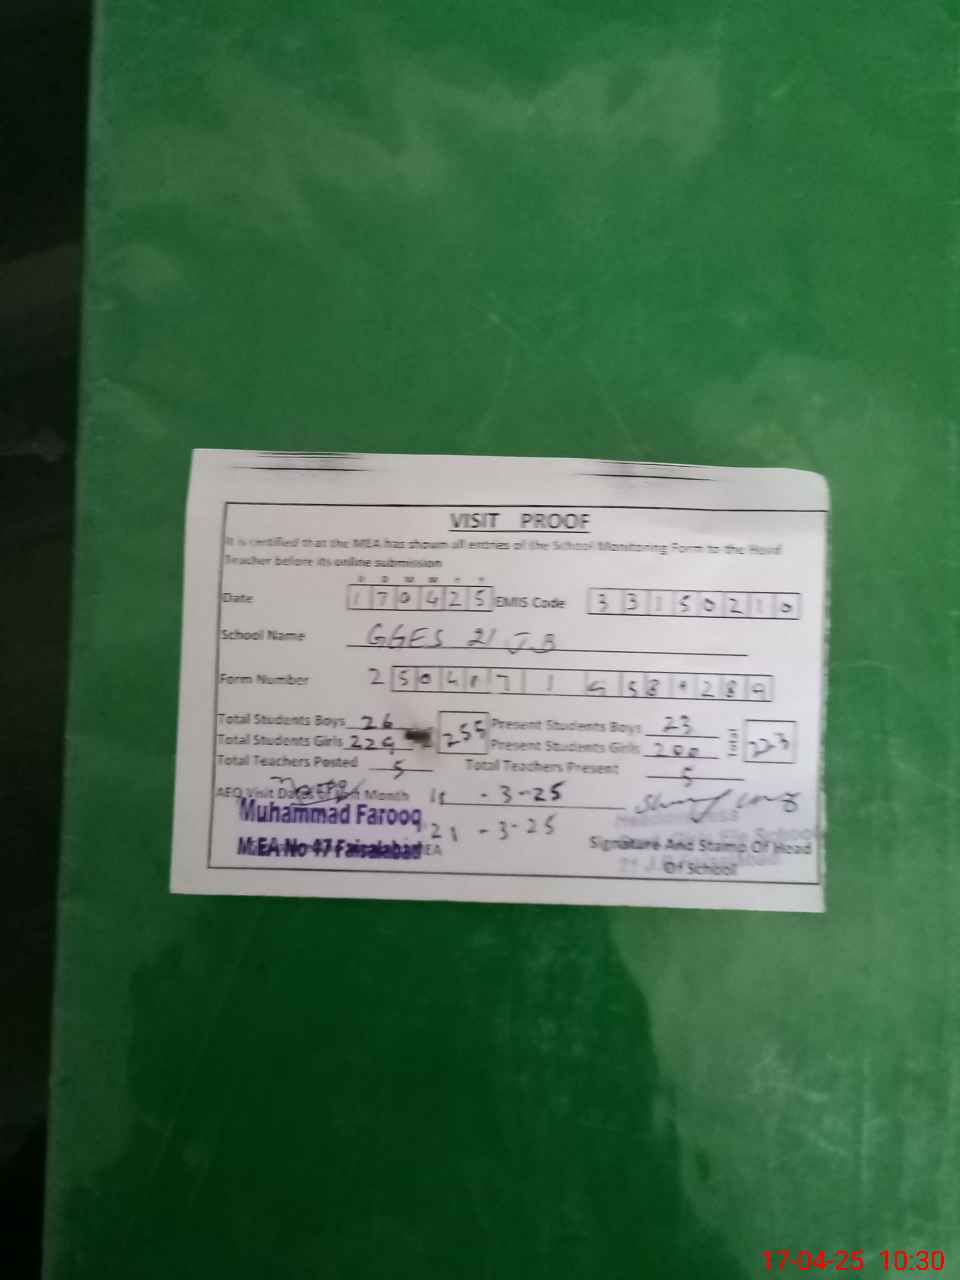 VISIT PROOF
It is certified that the MEA has shown all entries of the School Monitoring Form to the Head
Teacher before its online submission
D D M M Y Y
Date 1 7 0 4 2 5 EMIS Code 3 3 1 5 0 2 1 0
School Name GGES 21 J.B
Form Number 2 5 0 4 1 7 1
Total Students Boys 26 255 Present Students Boys 23 223
Total Students Girls 229 Present Students Girls 200
Total Teachers Posted 5 Total Teachers Present 5
AEO Visit Month - 3 - 25
Muhammad Farooq 21 - 3 - 25
M.EA No 47 Faisalabad MEA Signature And Stamp Of Head
Of School
17-04-25 10:30